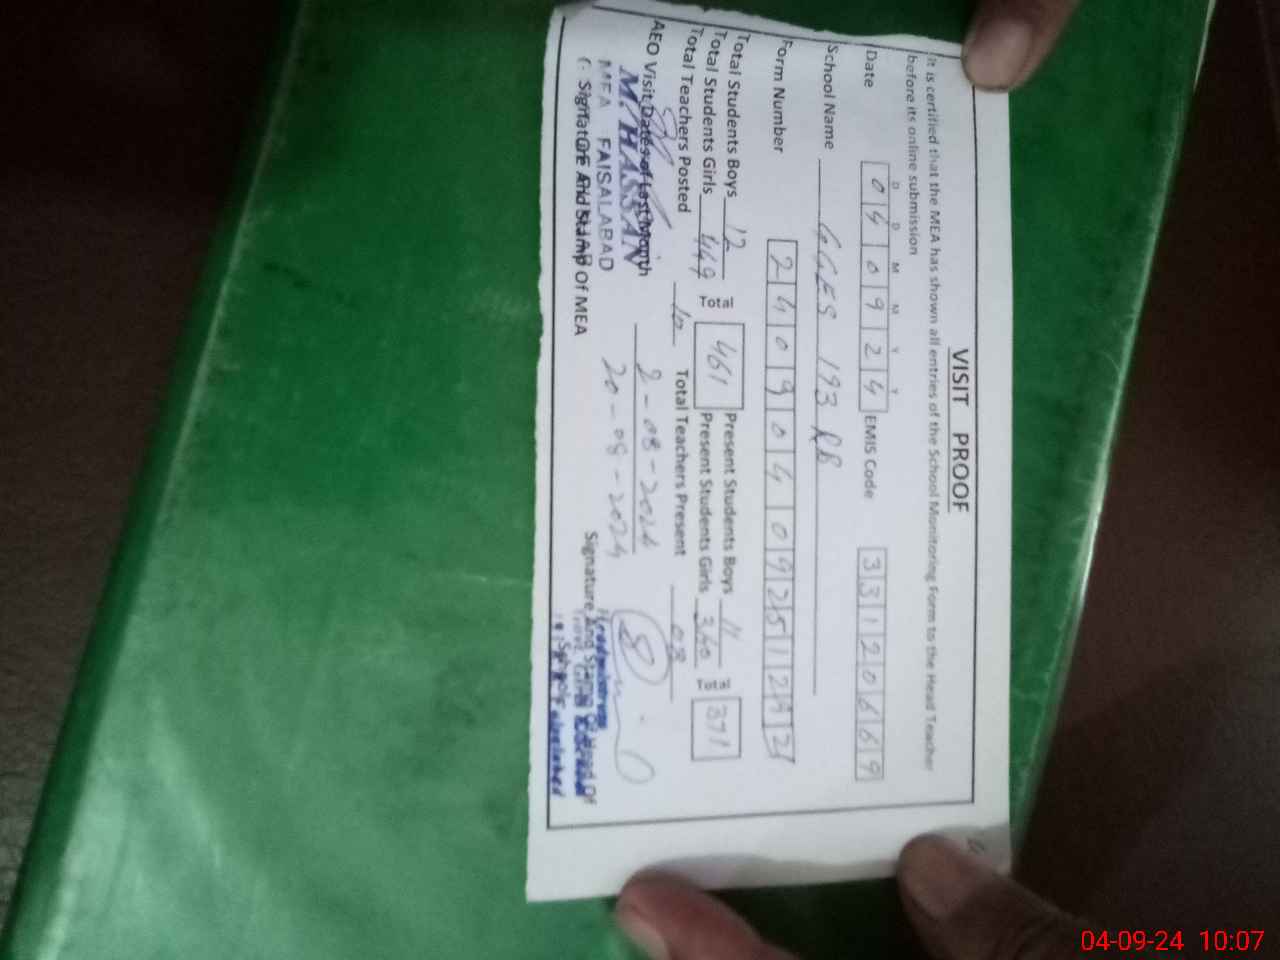 VISIT PROOF
It is certified that the MEA has shown all entries of the School Monitoring Form to the Head Teacher
before its online submission
D D M M Y Y
Date 040924 EMIS Code 33120669
School Name GGES 193 RB
Form Number 2409040925129
Total Students Boys 12 Present Students Boys 11
Total Students Girls 449 Total 461 Present Students Girls 360 Total 371
Total Teachers Posted 10 Total Teachers Present 08
AEO Visit Dates of Last Month 2-08-2024
20-08-2024
M. HASSAN
MEA FAISALABAD
Signature And Stamp Of MEA
Signature And Stamp Of Head Of
Headmistress
04-09-24 10:07